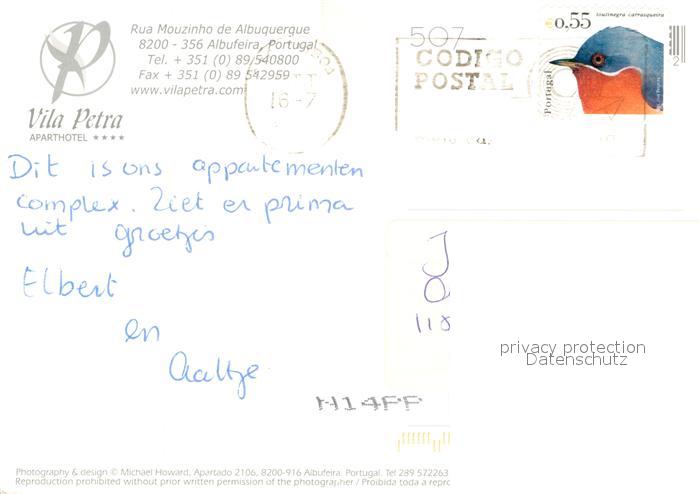 Rua Mouzinho de Albuquerque
8200 - 356 Albufeira, Portugal
Tel. + 351 (0) 89 540800
Fax + 351 (0) 89 542959
www.vilapetra.com
Vila Petra
APARTHOTEL ★★★★
16-7
507
CODIGO
POSTAL
€0,55
toutinegra carrasqueira
Portugal
2
Dit is ons appartementen
complex. Ziet er prima
uit groetjes
Elbert
en
Aaltje
J
118
privacy protection
Datenschutz
N14FF
Photography & design © Michael Howard, Apartado 2106, 8200-916 Albufeira. Portugal. Tel 289 572263
Reproduction prohibited without prior written permission of the photographer / Proibida toda a repro